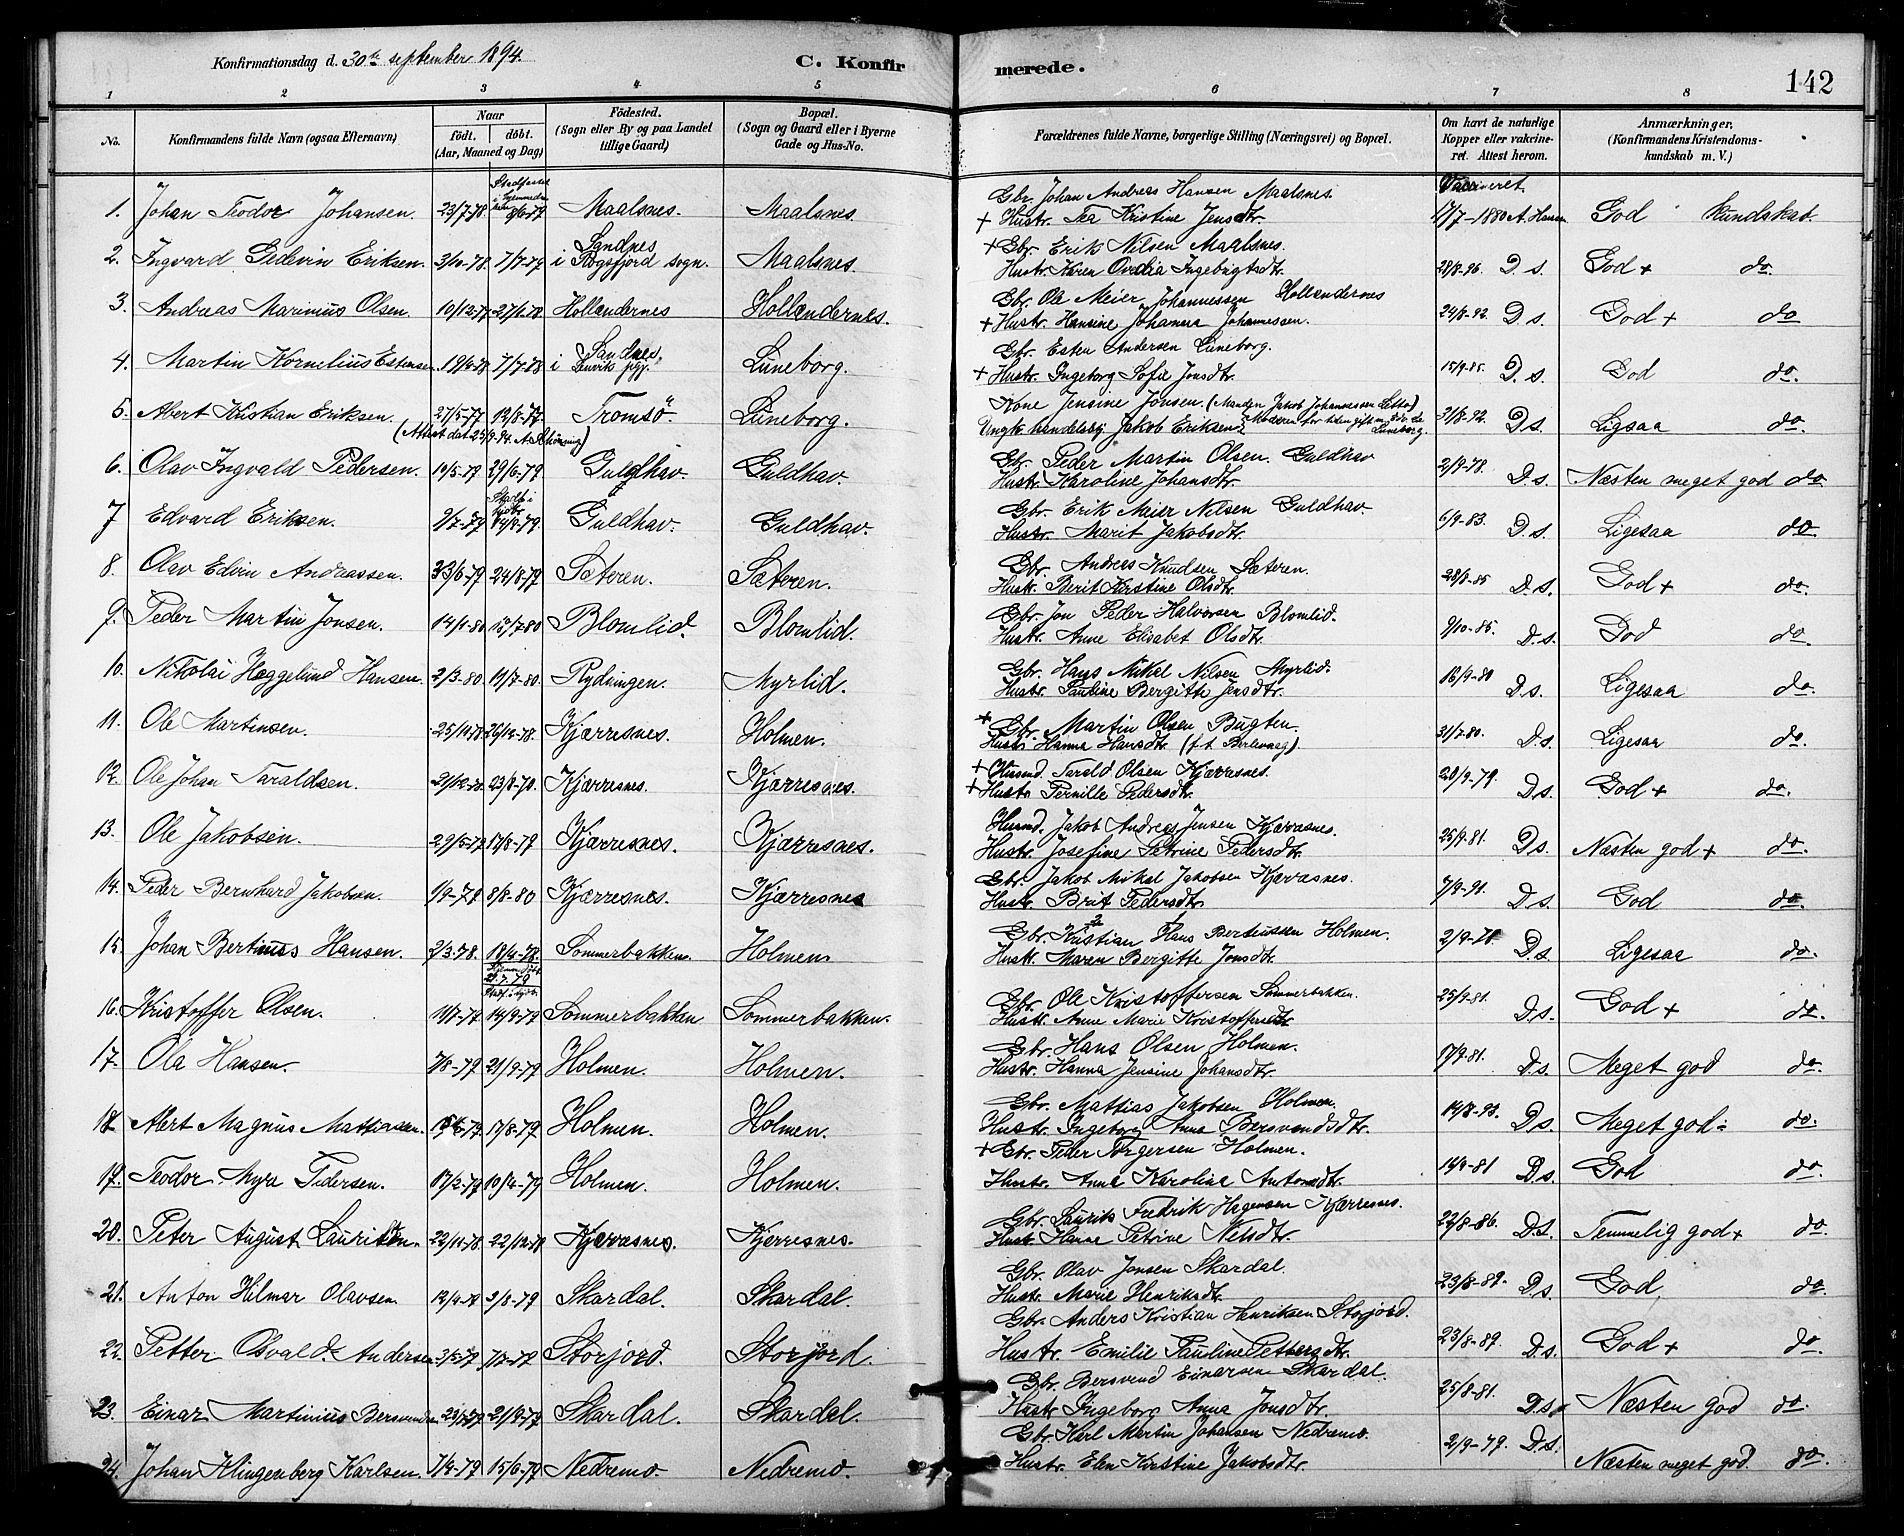 Konfirmationsdag d. 30te september 1894.
C. Konfirmerede.
142
1 2 3 4 5 6 7 8
No.
Konfirmandens fulde Navn (ogsaa Efternavn)
Naar
födt. döbt.
(Aar, Maaned og Dag)
Födested.
(Sogn eller By og paa Landet
tillige Gaard)
Bopæl.
(Sogn og Gaard eller i Byerne
Gade og Hus-No.
Forældrenes fulde Navne, borgerlige Stilling (Næringsvei) og Bopæl.
Om havt de naturlige
Kopper eller vakcine-
ret. Attest herom.
Anmærkninger.
(Konfirmandens Kristendoms-
kundskab m. V.)
1. Johan Teodor Johansen. 23/7-78. Maalsnes. Maalsnes.
Gbr. Johan Andreas Hansen Maalsnes.
+ Hustr. Tea Kristine Jensdtr. Vacineret 17/7-1880 A. Hansen God kundskab.
2. Ingvard Edevin Eriksen. 3/10-78. 7/7-79 Sandnes
i sogn. Maalsnes.
+ Gbr. Erik Nilsen Maalsnes.
Hustr. Karen Ovedia Ingebrigtsdtr. 28/8-86. D.s. God + do.
3. Andreas Marinius Olsen. 10/12-77 27/1-78 Hollændernes Hollændernes.
Gbr. Ole Meier Johannessen Hollændernes
+ Hustr. Hansine Johanna Johannessen. 24/8-92. D.s. God + do
4. Martin Kornelius Estensen. 7/7-78 i Sandnes,
Lenviks pgj. Lüneborg.
Gbr. Esten Andersen Lüneborg.
+ Hustr. Ingeborg Sofie Jonsdtr. 15/9-85. D.s. God do.
5. Abert Kristian Eriksen. 27/5-77 12/8-77 Tromsö Lüneborg.
Kone Jensine Jonsen. (Manden Jakob Johannessen
Ungk. Jakob Eriksen Lüneborg. 31/8-92. D.s. Ligsaa do.
6. Olav Ingvald Pedersen. 10/5-79 29/6-79 Guldhav. Guldhav.
Gbr. Peder Martin Olsen. Guldhav
Hustr. Karoline Johansdtr. 2/9-78. D.s. Næsten meget god do
7 Edvard Eriksen. 9/7-79 14/9-79 Guldhav. Guldhav.
Gbr. Erik Meier Nilsen Guldhav.
Hustr. Marit Jakobsdtr. 6/9-83. D.s. Ligesaa do
8. Olav Edvin Andreassen. 24/8-79 Sæteren. Sæteren.
Gbr. Andreas Knudsen Sæteren.
Hustr. Berit Kirstine Olsdtr. 28/8-85 D.s. God + do.
9. Peder Martin Jonsen. 14/1-80 Blomlid. Blomlid.
Gbr. Jon Peder Halvorsen Blomlid.
Hustr. Anne Elisabet Olsdtr. 9/10-85. D.s. God do
10. Nikolai Heggelund Hansen. 2/3-80. 11/7-80. Rydningen. Myrlid.
Gbr. Hans Mikal Nilsen Myrlid.
Hustr. Pauline Bergitte Jensdtr. 16/9-80 D.s. Ligesaa do.
11. Ole Martinsen. 25/10-78 26/12-78. Kjærresnes. Holmen.
+ Gbr. Martin Olsen Bugten.
Hustr. Hanna Hansdtr. (f. t. Berlevaag). 31/7-80. D.s. Ligesaa do.
12. Ole Johan Taraldsen. 23/8-78. Kjærresnes. Kjærresnes.
+ Husmd. Tarald Olsen Kjærresnes.
+ Hustr. Pernille Pedersdtr. 20/9-79. D.s. God + do.
13. Ole Jakobsen. 29/5-79 17/8-79 Kjærresnes. Kjærresnes.
Husmd. Jakob Andreas Jensen Kjærresnes.
Hustr. Josefine Petrine Pedersdtr. 25/9-81. D.s. Næsten god + do.
14. Peder Bernhard Jakobsen. 1/9-79 8/8-80 Kjærresnes. Kjærresnes
Gbr. Jakob Mikal Jakobsen Kjærresnes.
Hustr. Brit Pedersdtr. 7/9-91. D.s. God do.
15. Johan Bertinus Hansen. 2/3-78. 18/4-78. Sommerbakken. Holmen
Gbr. Kristian Hans Bertinssen Holmen.
Hustr. Maren Bergitte Jonsdtr. 2/9-78 D.s. Ligesaa do.
16. Kristoffer Olsen. 11/7-77 14/9-79 Sommerbakken Sommerbakken.
Gbr. Ole Kristoffersen Sommerbakken.
Hustr. Anne Marie Kristoffersdtr 25/9-81. D.s. God + do.
17. Ola Hansen. 7/8-79 21/9-79 Holmen. Holmen.
Gbr. Hans Olsen Holmen.
Hustr. Hanna Jensine Johansdtr. 17/9-81. D.s. Meget god do.
18 Albert Magnus Mattiasen. 17/8-79 Holmen. Holmen.
Gbr. Mattias Jakobsen Holmen.
Hustr. Ingeborg Anna Bersvendsdtr. 14/8-93. D.s. Meget god do.
19. Teodor Myra Pedersen. 17/2-79 10/4-79 Holmen. Holmen.
+ Gbr. Peder Torgersen Holmen.
Hustr. Anna Karolina Antonsdtr. D.s. God do.
20. Peter August Lauritsen. 22/11-78. 22/12-78 Kjærresnes. Kjerresnes.
Gbr. Laurits Fredrik Hagensen Kjærresnes.
Hustr. Hanne Petrine Nelsdtr. 22/8-86. D.s. Temmelig god + do.
21. Anton Hilmar Olavsen. 3/8-79 Skardal. Skardal.
Gbr. Olav Jonsen Skardal.
Hustr. Marie Henriksdtr. 23/8-89. D.s. God do.
22. Petter Osvald Andersen Storjord. Storjord.
Gbr. Anders Kristian Henriksen Storjord.
Hustr. Emilie Pauline Petbergdtr. 23/8-89. D.s. God + do
23. Einar Martinius Bersvendsen 21/9-79 Skardal. Skardal.
Gbr. Bersvend Einarsen Skardal.
Hustr. Ingeborg Anna Jonsdtr. 25/8-81. D.s. Næsten god do.
24. Johan Klingenberg Karlsen. 7/4-79 15/6-79 Nedremo. Nedremo.
Gbr. Karl Martin Johansen Nedremo.
Hustr. Elen Kirstine Jakobsdtr. 2/9-79. D.s. Næsten meget god. do.